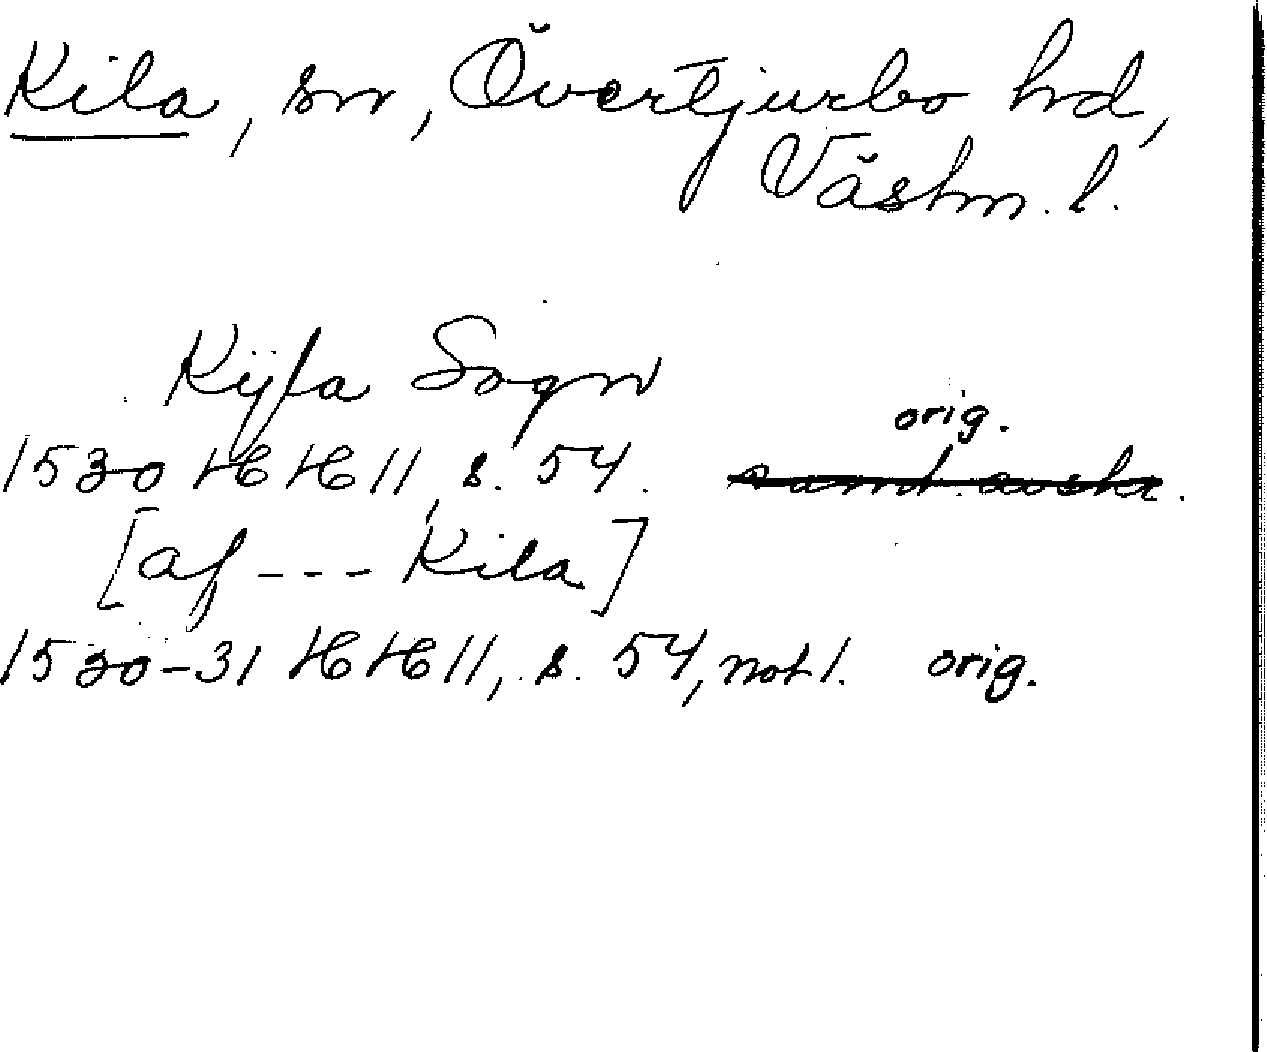 Kila, sn, Övertjurbo hd,
Västm. l.
Kÿla Sogn
orig.
1530 HH 11, s. 54.
[af --- Kila]
1530-31 HH 11, s. 54, not 1. orig.